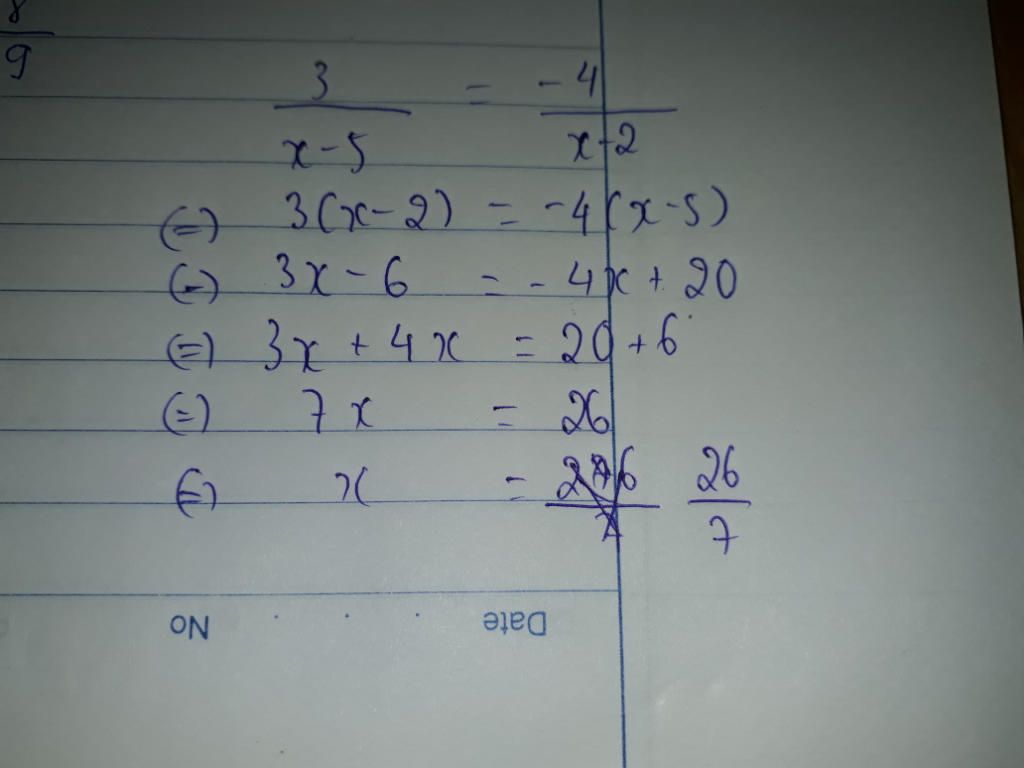 8
9
3 = -4
x-5 x-2
(=) 3(x-2) = -4(x-5)
(=) 3x-6 = -4x+20
(=) 3x+4x = 20+6
(=) 7x = 26
(=) x = 26
7
No Date